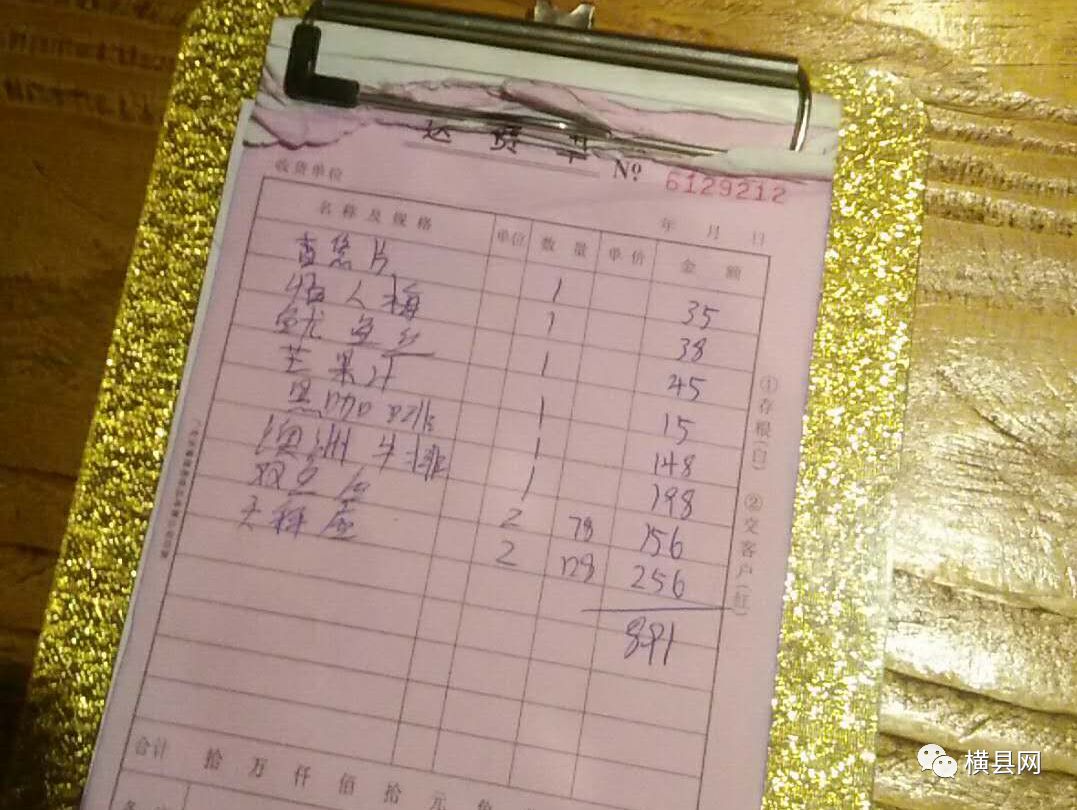 送货单
№ 6129212
收货单位
年 月 日
名称及规格 单位 数量 单价 金额
1 35
情人梅 1 38
鱿鱼丝 1 45
芒果汁 1 15
黑咖啡 1 148
澳洲牛排 1 198
双鱼座 2 78 156
天秤座 2 128 256
891
合计 拾 万 仟 佰 拾 元 角
①存根(白) ②交客户(红)
横县网